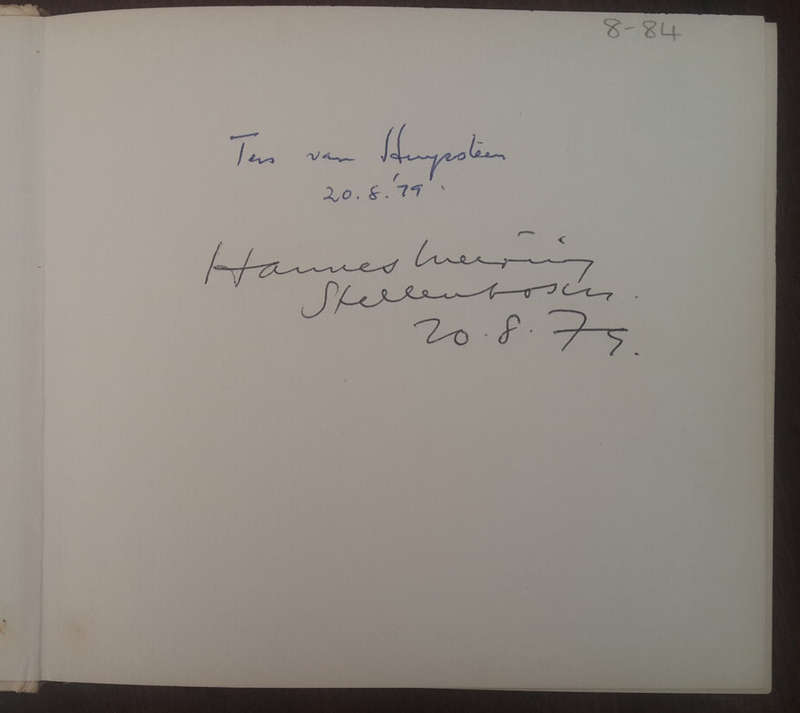 8-84
Ters van Huyssteen
20.8.'79.
Hannes Meiring
Stellenbosch.
20.8.79.